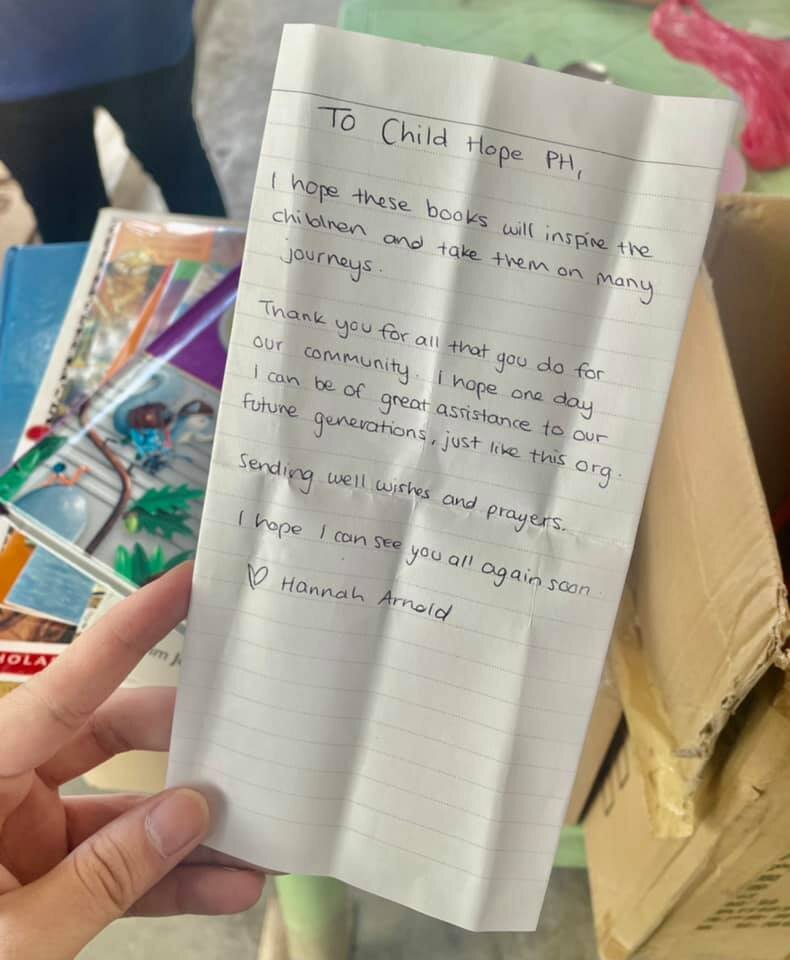 To Child Hope PH,
I hope these books will inspire the
children and take them on many
journeys.
Thank you for all that you do for
our community. I hope one day
I can be of great assistance to our
future generations, just like this org.
Sending well wishes and prayers.
I hope I can see you all again soon.
♡ Hannah Arnold